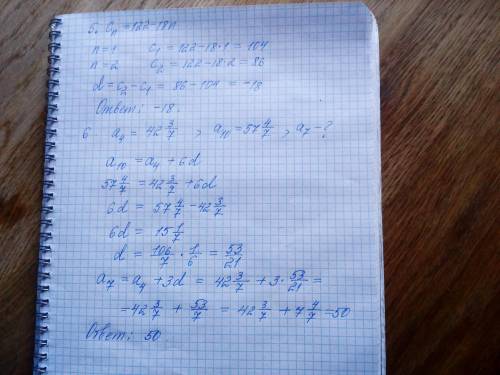 5. Cₙ = 122-18n
n=1 C₁ = 122-18·1 = 104
n=2 C₂ = 122-18·2 = 86
d = C₂ - C₁ = 86 - 104 = -18
Ответ: -18.
6 a₄ = 42 3/7 , a₁₀ = 57 4/7 , a₇ - ?
a₁₀ = a₄ + 6d
57 4/7 = 42 3/7 + 6d
6d = 57 4/7 - 42 3/7
6d = 15 1/7
d = 106/7 · 1/6 = 53/21
a₇ = a₄ + 3d = 42 3/7 + 3· 53/21 =
= 42 3/7 + 53/7 = 42 3/7 + 7 4/7 = 50
Ответ: 50